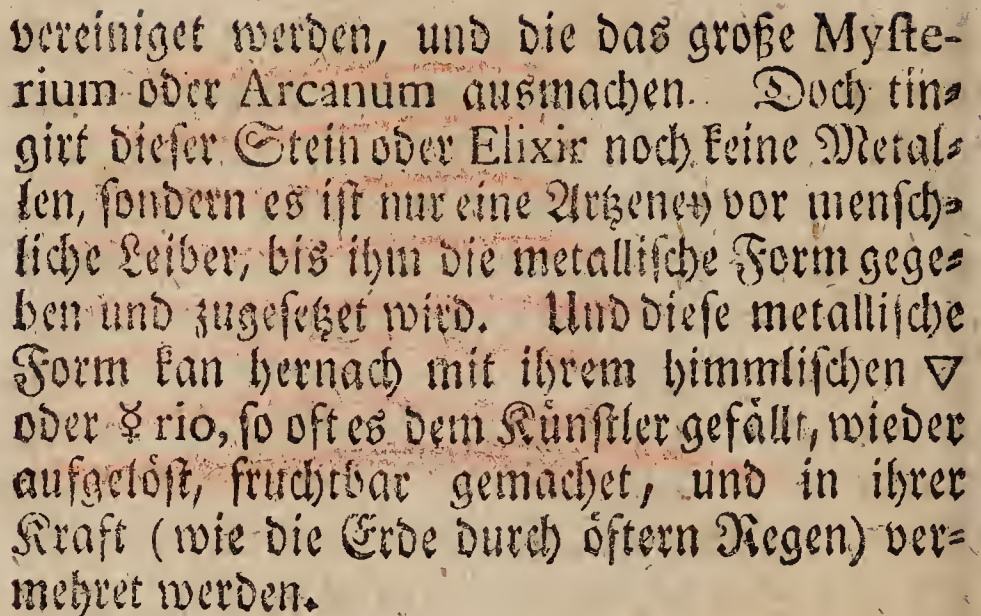 vereiniget werden, und die das große Myste-
rium oder Arcanum ausmachen. Doch tin-
girt dieser Stein oder Elixir noch keine Metal-
len, sondern es ist nur eine Artzeney vor mensch-
liche Leiber, bis ihm die metallische Form gege-
ben und zugesetzet wird. Und diese metallische
Form kan hernach mit ihrem himmlischen 🜄
oder ☿ rio, so oft es dem Künstler gefällt, wieder
aufgelöst, fruchtbar gemachet, und in ihrer
Kraft (wie die Erde durch öftern Regen) ver-
mehret werden.